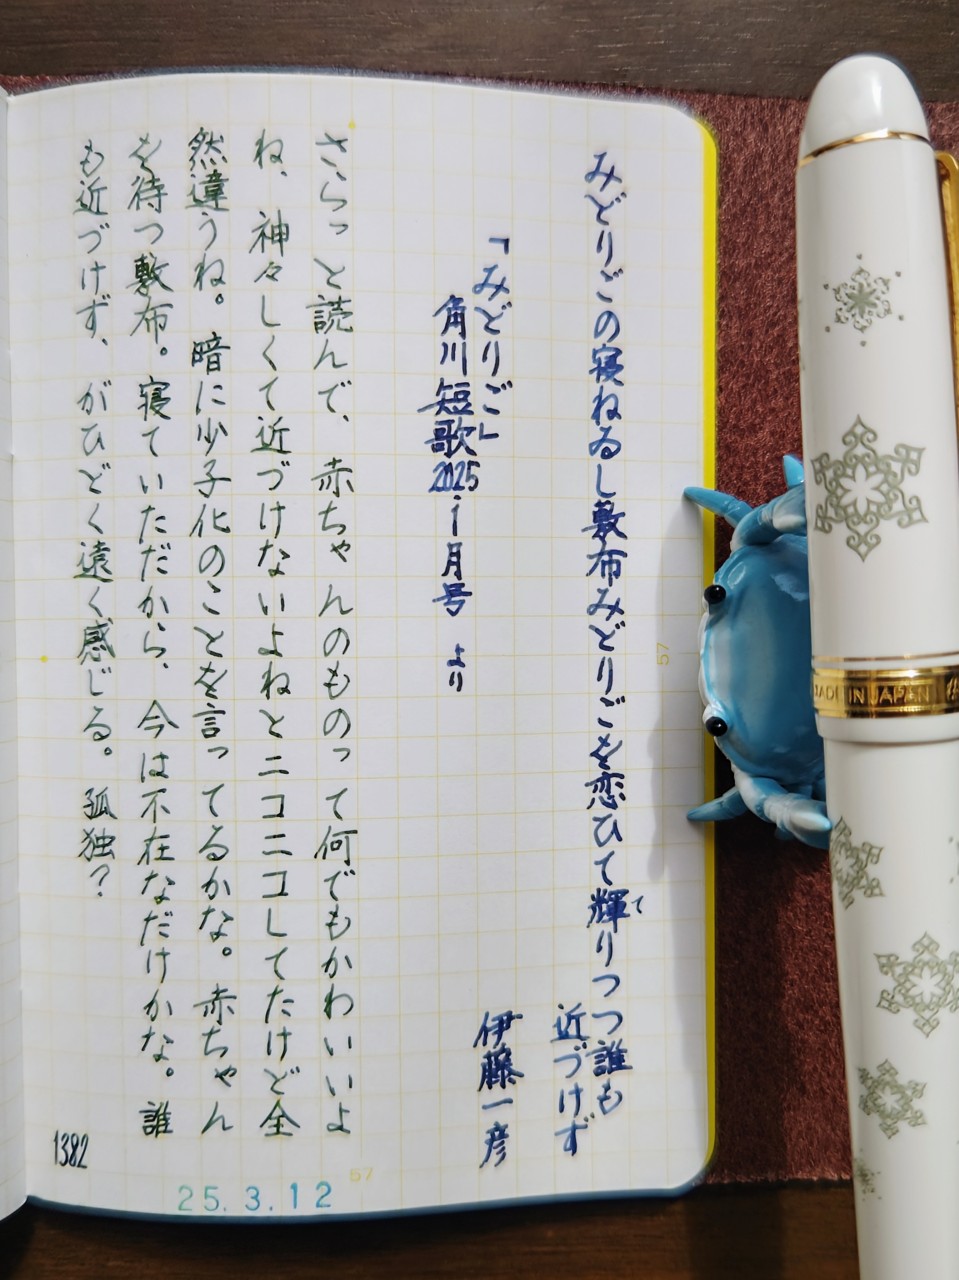 みどりごの寝ねゐし敷布みどりごを恋ひて輝りつつ誰も
て
近づけず
伊藤一彦
「みどりご」
角川短歌2025.1月号 より
さらっと読んで、赤ちゃんのものって何でもかわいいよ
ね、神々しくて近づけないよねとニコニコしてたけど全
然違うね。暗に少子化のことを言ってるかな。赤ちゃん
を待つ敷布。寝ていただから、今は不在なだけかな。誰
も近づけず、がひどく遠く感じる。孤独?
1382
25.3.12
57
57
MADE IN JAPAN